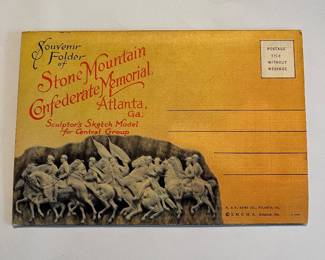 Souvenir
Folder
of
Stone Mountain
Confederate Memorial,
Atlanta,
Ga.
Sculptor's Sketch Model
for Central Group
POSTAGE
1½¢
WITHOUT
MESSAGE